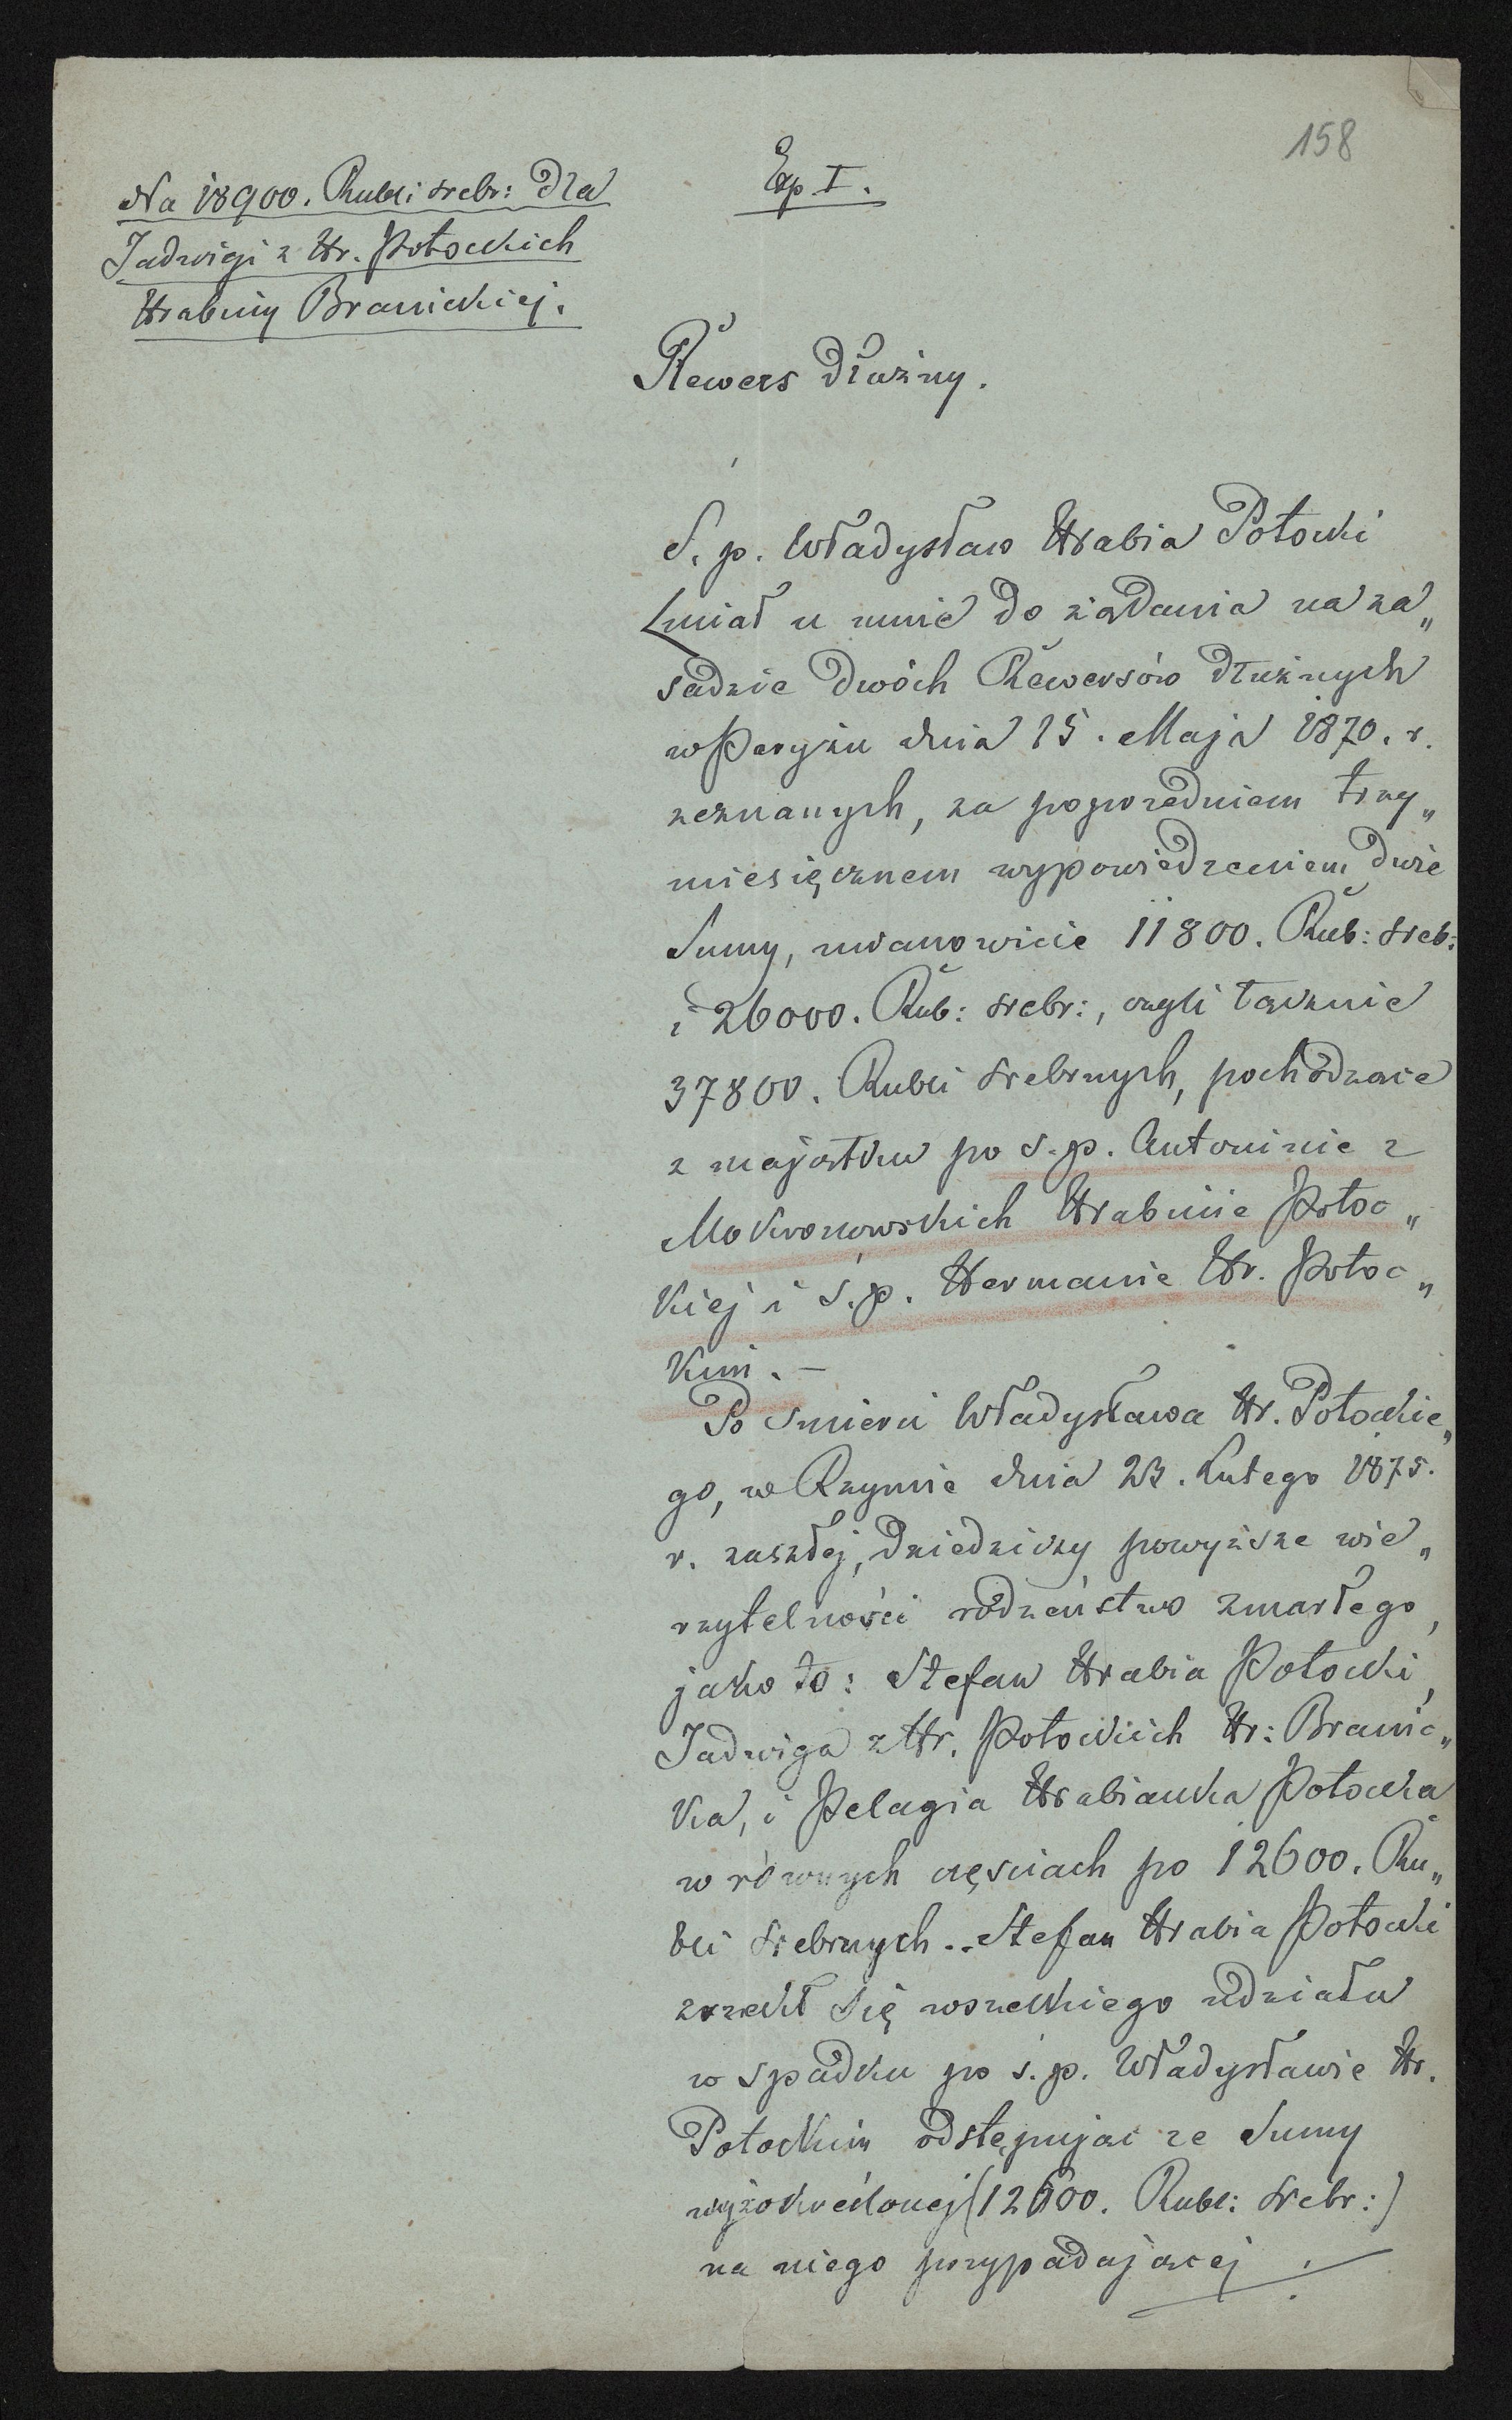 158
Exp I.
Na 18900. Rubli srebr: dla
Jadwigi z Hr. Potockich
Hrabiny Branickiej.
Rewers dłużny.
S. p. Władysław Hrabia Potocki
miał u mnie do żądania na za„
sadzie dwóch Rewersów dłużnych
w Paryżu dnia 15. Maja 1870. r.
zeznanych, za poprzedniem trzy„
miesięcznem wypowiedzeniem dwie
Sumy, mianowicie 11800. Rub: sreb:
i 26000. Rub: srebr:, czyli łącznie
37800. Rubli srebrnych, pochodzące
z majątku po ś. p. Antoninie z
Mokronowskich Hrabinie Potoc„
kiej i ś. p. Hermanie Hr. Potoc„
kim. –
Po śmierci Władysława Hr. Potockie„
go, w Rzymie dnia 23. Lutego 1875.
r. zaszłej, dziedziczy powyższe wie„
rzytelności rodzeństwo zmarłego,
jako to: Stefan Hrabia Potocki,
Jadwiga z Hr. Potockich Hr: Branic„
ka, i Pelagia Hrabianka Potocka
w równych częściach po 12600. Ru„
bli srebrnych. . Stefan Hrabia Potocki
zrzekł się wszelkiego udziału
w spadku po ś. p. Władysławie Hr.
Potockim odstępując ze Sumy
wyżokreślonej (12600. Rubl: srebr:)
na niego przypadającej